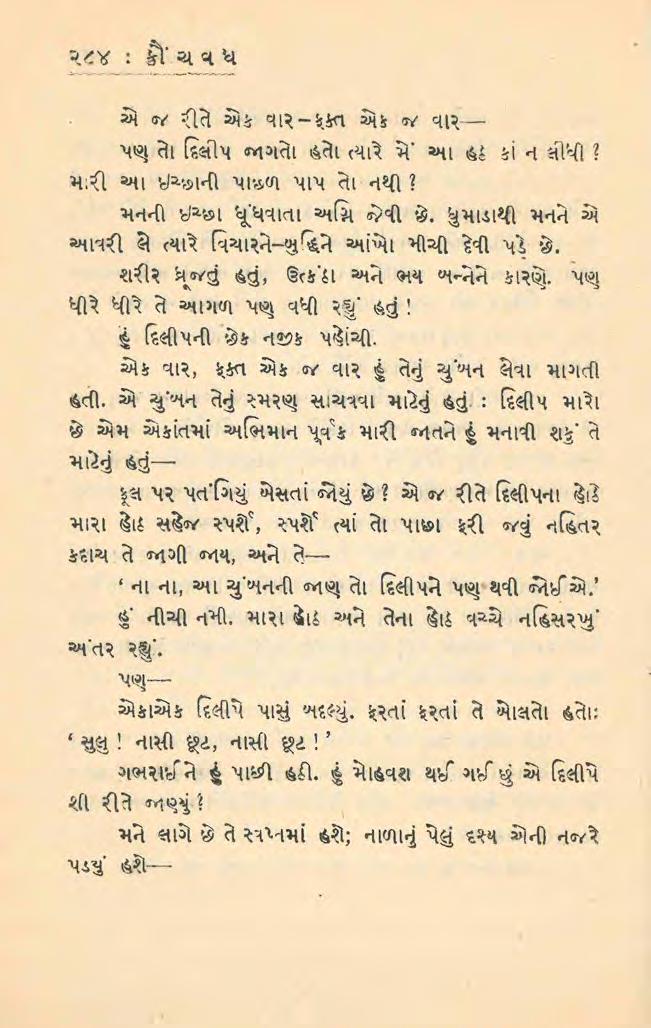 ૨૮૪ : ક્રૌંચવધ
એ જ રીતે એક વાર–ફક્ત એક જ વાર—
પણ તો દિલીપ જાગતો હતો ત્યારે મેં આ હઠ કાં ન લીધી ?
મારી આ ઇચ્છાની પાછળ પાપ તો નથી ?
મનની ઇચ્છા ધૂંધવાતા અગ્નિ જેવી છે. ધુમાડાથી મનને એ
આવરી લે ત્યારે વિચારને–બુદ્ધિને આંખો મીચી દેવી પડે છે.
શરીર ધ્રૂજતું હતું, ઉત્કંઠા અને ભય બન્નેને કારણે. પણ
ધીરે ધીરે તે આગળ પણ વધી રહ્યું હતું !
હું દિલીપની છેક નજીક પહોંચી.
એક વાર, ફક્ત એક જ વાર હું તેનું ચુંબન લેવા માગતી
હતી. એ ચુંબન તેનું સ્મરણ સાચવવા માટેનું હતું : દિલીપ મારો
છે એમ એકાંતમાં અભિમાન પૂર્વક મારી જાતને હું મનાવી શકું તે
માટેનું હતું—
ફૂલ પર પતંગિયું બેસતાં જોયું છે ? એ જ રીતે દિલીપના હોઠે
મારા હોઠ સહેજ સ્પર્શે, સ્પર્શે ત્યાં તો પાછા ફરી જવું નહિતર
કદાચ તે જાગી જાય, અને તે—
‘ ના ના, આ ચુંબનની જાણ તો દિલીપને પણ થવી જોઈએ.’
હું નીચી નમી. મારા હોઠ અને તેના હોઠ વચ્ચે નહિસરખું
અંતર રહ્યું.
પણ—
એકાએક દિલીપે પાસું બદલ્યું. ફરતાં ફરતાં તે બોલતો હતોઃ
‘ સુલુ ! નાસી છૂટ, નાસી છૂટ ! ’
ગભરાઈને હું પાછી હઠી. હું મોહવશ થઈ ગઈ છું એ દિલીપે
શી રીતે જાણ્યું ?
મને લાગે છે તે સ્વપ્નમાં હશે; નાળાનું પેલું દશ્ય એની નજરે
પડયું હશે—